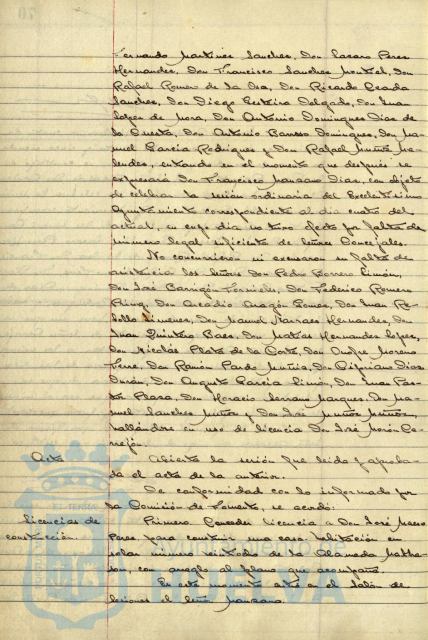 Fernando Martínez Sanchez, Don Lázaro Perez
Hernandez, Don Francisco Sanchez Montiel, Don
Rafael Romero de la Osa, Don Ricardo Losada
Sanchez, Don Diego Don Juan
Lopez de Mora, Don Antonio Dominguez Diaz de
la Cuesta, Don Antonio Barroso Dominguez, Don Ma-
nuel García Rodriguez y Don Rafael Muñiz Me-
lendez, entrando en el momento que después se
expresará Don Francisco Manzano Diaz, con objeto
de celebrar la sesión ordinaria del Excelentísimo
Ayuntamiento correspondiente al día cuatro del
actual, en cuyo día no tuvo efecto por falta de
número legal suficiente de Señores Concejales.
No concurrieron ni excusaron su falta de
asistencia los Señores Don Pedro Borrero Limón,
Don José Barrigón Don Federico Romero
Don Arcadio Aragón Gomez, Don Juan Re-
bollo Jimenez, Don Manuel Narvaez Hernandez, Don
Juan Quintero Baez, Don Matías Hernandez Lopez,
Don Nicolás de la Corte, Don Onofre Moreno
Don Ramón Pardo Don Cipriano Diaz
Durán, Don Augusto García Limón, Don Juan
Plaza, Don Horacio Serrano Marquez, Don Ma-
nuel Sanchez Muñoz y Don José Muñoz Muñoz,
hallándose en uso de licencia Don José Morón Ce-
rrejón.
Acta Abierta la sesión fue leída y aproba-
da el acta de la anterior.
De conformidad con lo informado por
la Comisión de Fomento, se acordó:
Licencias de
construcción. Primero: Conceder licencia a Don José
Perez para construir una casa habitación en
solar sin título de la Alameda
con arreglo al plano que acompaña.
En este momento entra en el Salón de
Sesiones el Señor Manzano.
HUELVA